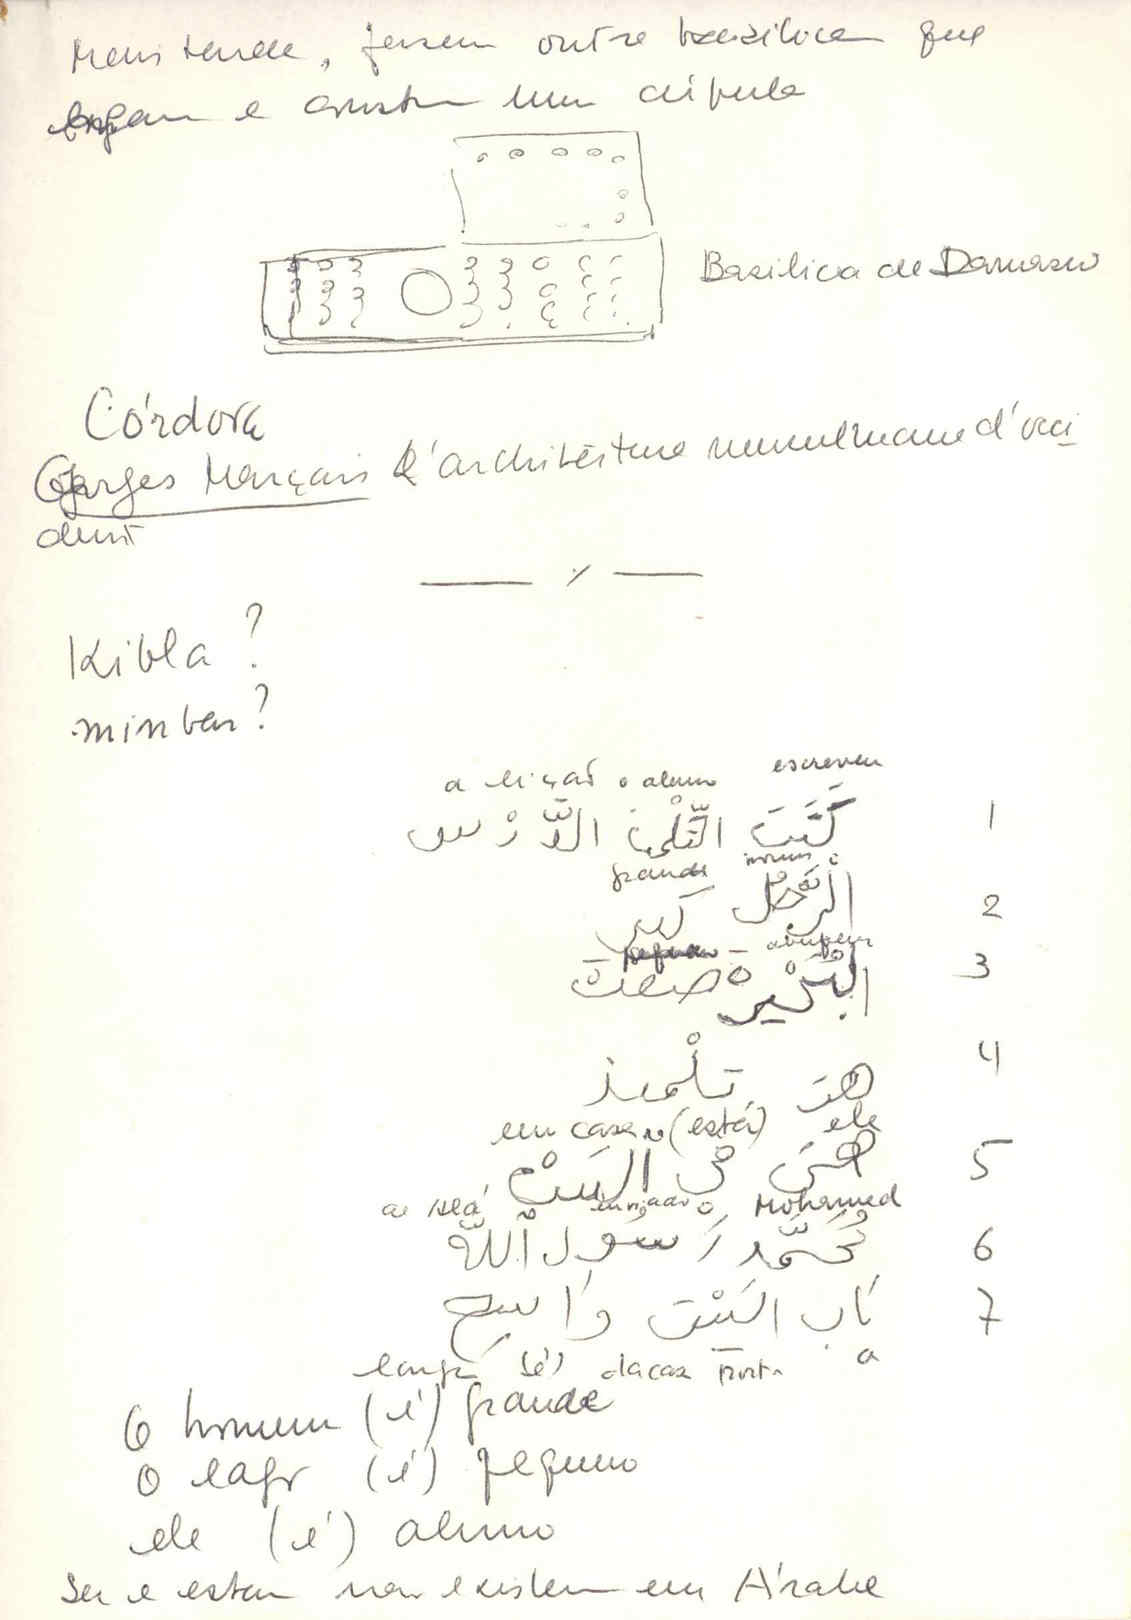 Mais tarde, fazem outra basilica que
alargam e constroem uma cúpula
Basilica de Damasco
Córdova
Georges Marçais L'architecture musulmane d'occi
dent
Kibla ?
minbar ?
a lição o aluno escreveu
كَتَبَ التِّلْميذ الدَّرْس 1
grande homem o
الرَّجُل كبير 2
pequeno
البُحَيْرة صغيرة 3
هوَ تلْميذ 4
em casa (está) ele
هيَ في البَيْت 5
a Alá Mohamed
مُحَمَّد رَسُول اللّه 6
بَاب البَيْت وَاسِع 7
larga (é) da casa porta a
O homem (é) grande
O lago (é) pequeno
ele (é) aluno
Ser e estar não existem em Árabe